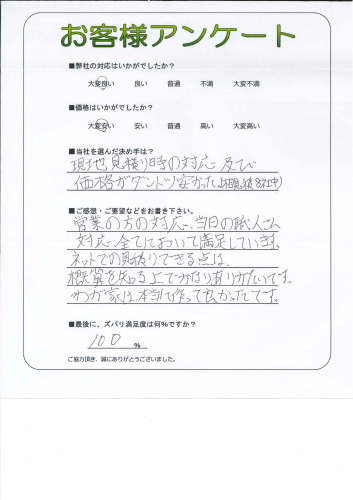 お客様アンケート
■弊社の対応はいかがでしたか?
大変良い 良い 普通 不満 大変不満
■価格はいかがでしたか?
大変安い 安い 普通 高い 大変高い
■当社を選んだ決め手は?
現地見積り時の対応及び
価格がダントツ安かった(相見積8社中)
■ご感想・ご要望などをお書き下さい。
営業の方の対応、当日の職人さん
対応全てにおいて満足しています。
ネットでの見積りできる点は、
概算を知る上でかなりありがたいです。
わが家は、本当に作って良かったです。
■最後に、ズバリ満足度は何%ですか?
100 %
ご協力頂き、誠にありがとうございました。